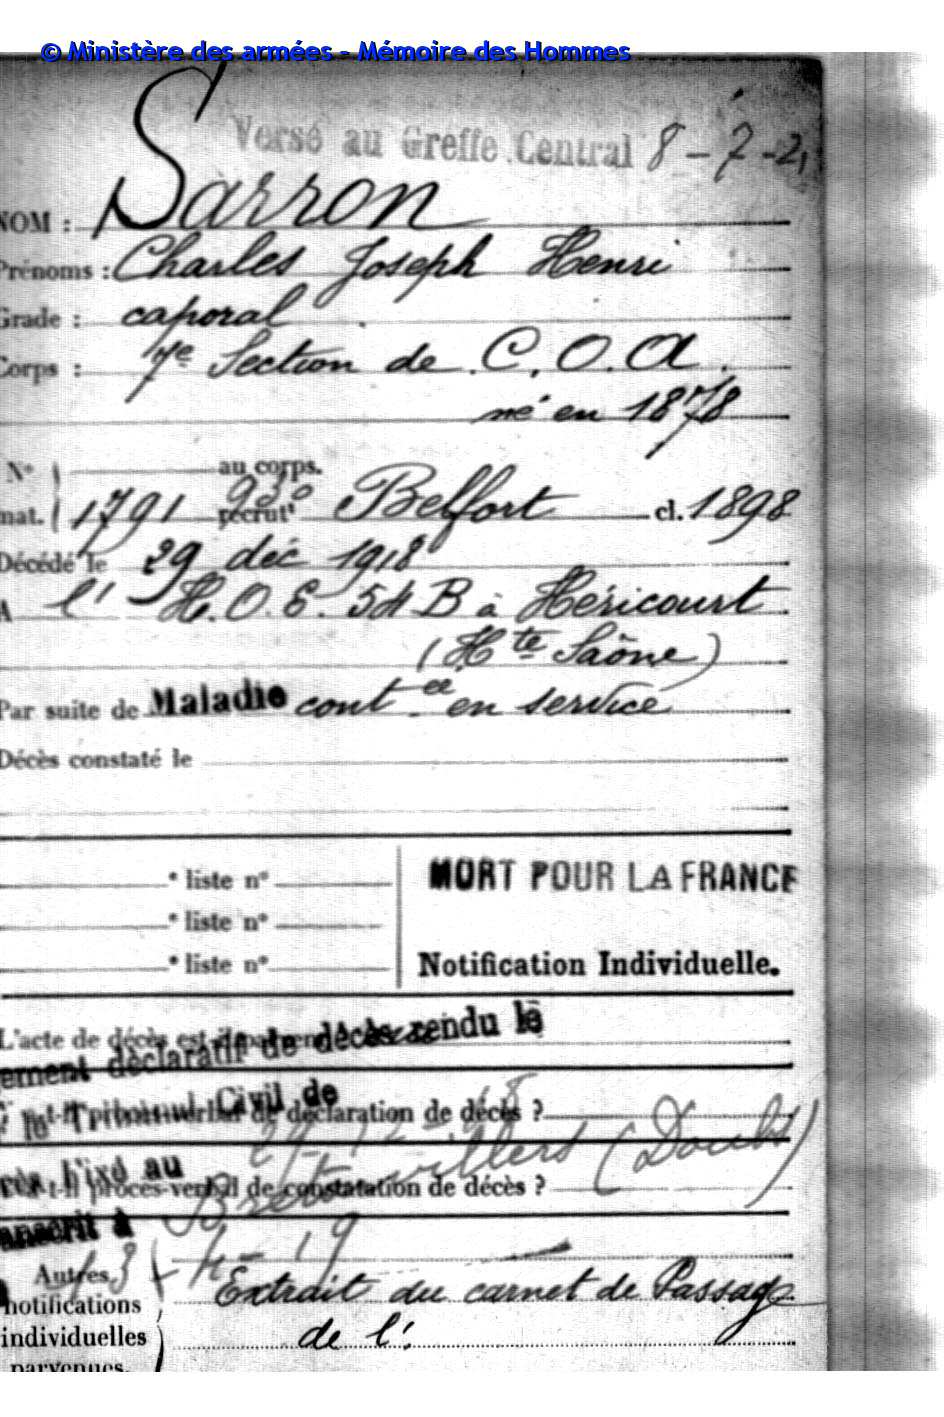 © Ministère des armées - Mémoire des Hommes
Versé au Greffe Central 8-7-2
NOM : Sarron
Prénoms : Charles Joseph Henri
Grade : caporal
Corps : 7e Section de C.O.A.
né en 1878
N° au corps.
mat. 1791 recrutt Belfort cl. 1898
Décédé le 29 déc 1918
A l' H.O.E. 54 B à Héricourt
(Hte Saône)
Par suite de Maladie contee en service
Décès constaté le
* liste n°
* liste n°
* liste n°
MORT POUR LA FRANCE
Notification Individuelle.
L'acte de décès est
déclaratif de décès rendu le
Tribunal Civil de
de déclaration de décès ?
29-12-18
(Doubs)
l'ixé au
procès-verbal de constatation de décès ?
13-4-19
Autres
notifications
individuelles
parvenues.
Extrait du carnet de Passage
de l'.